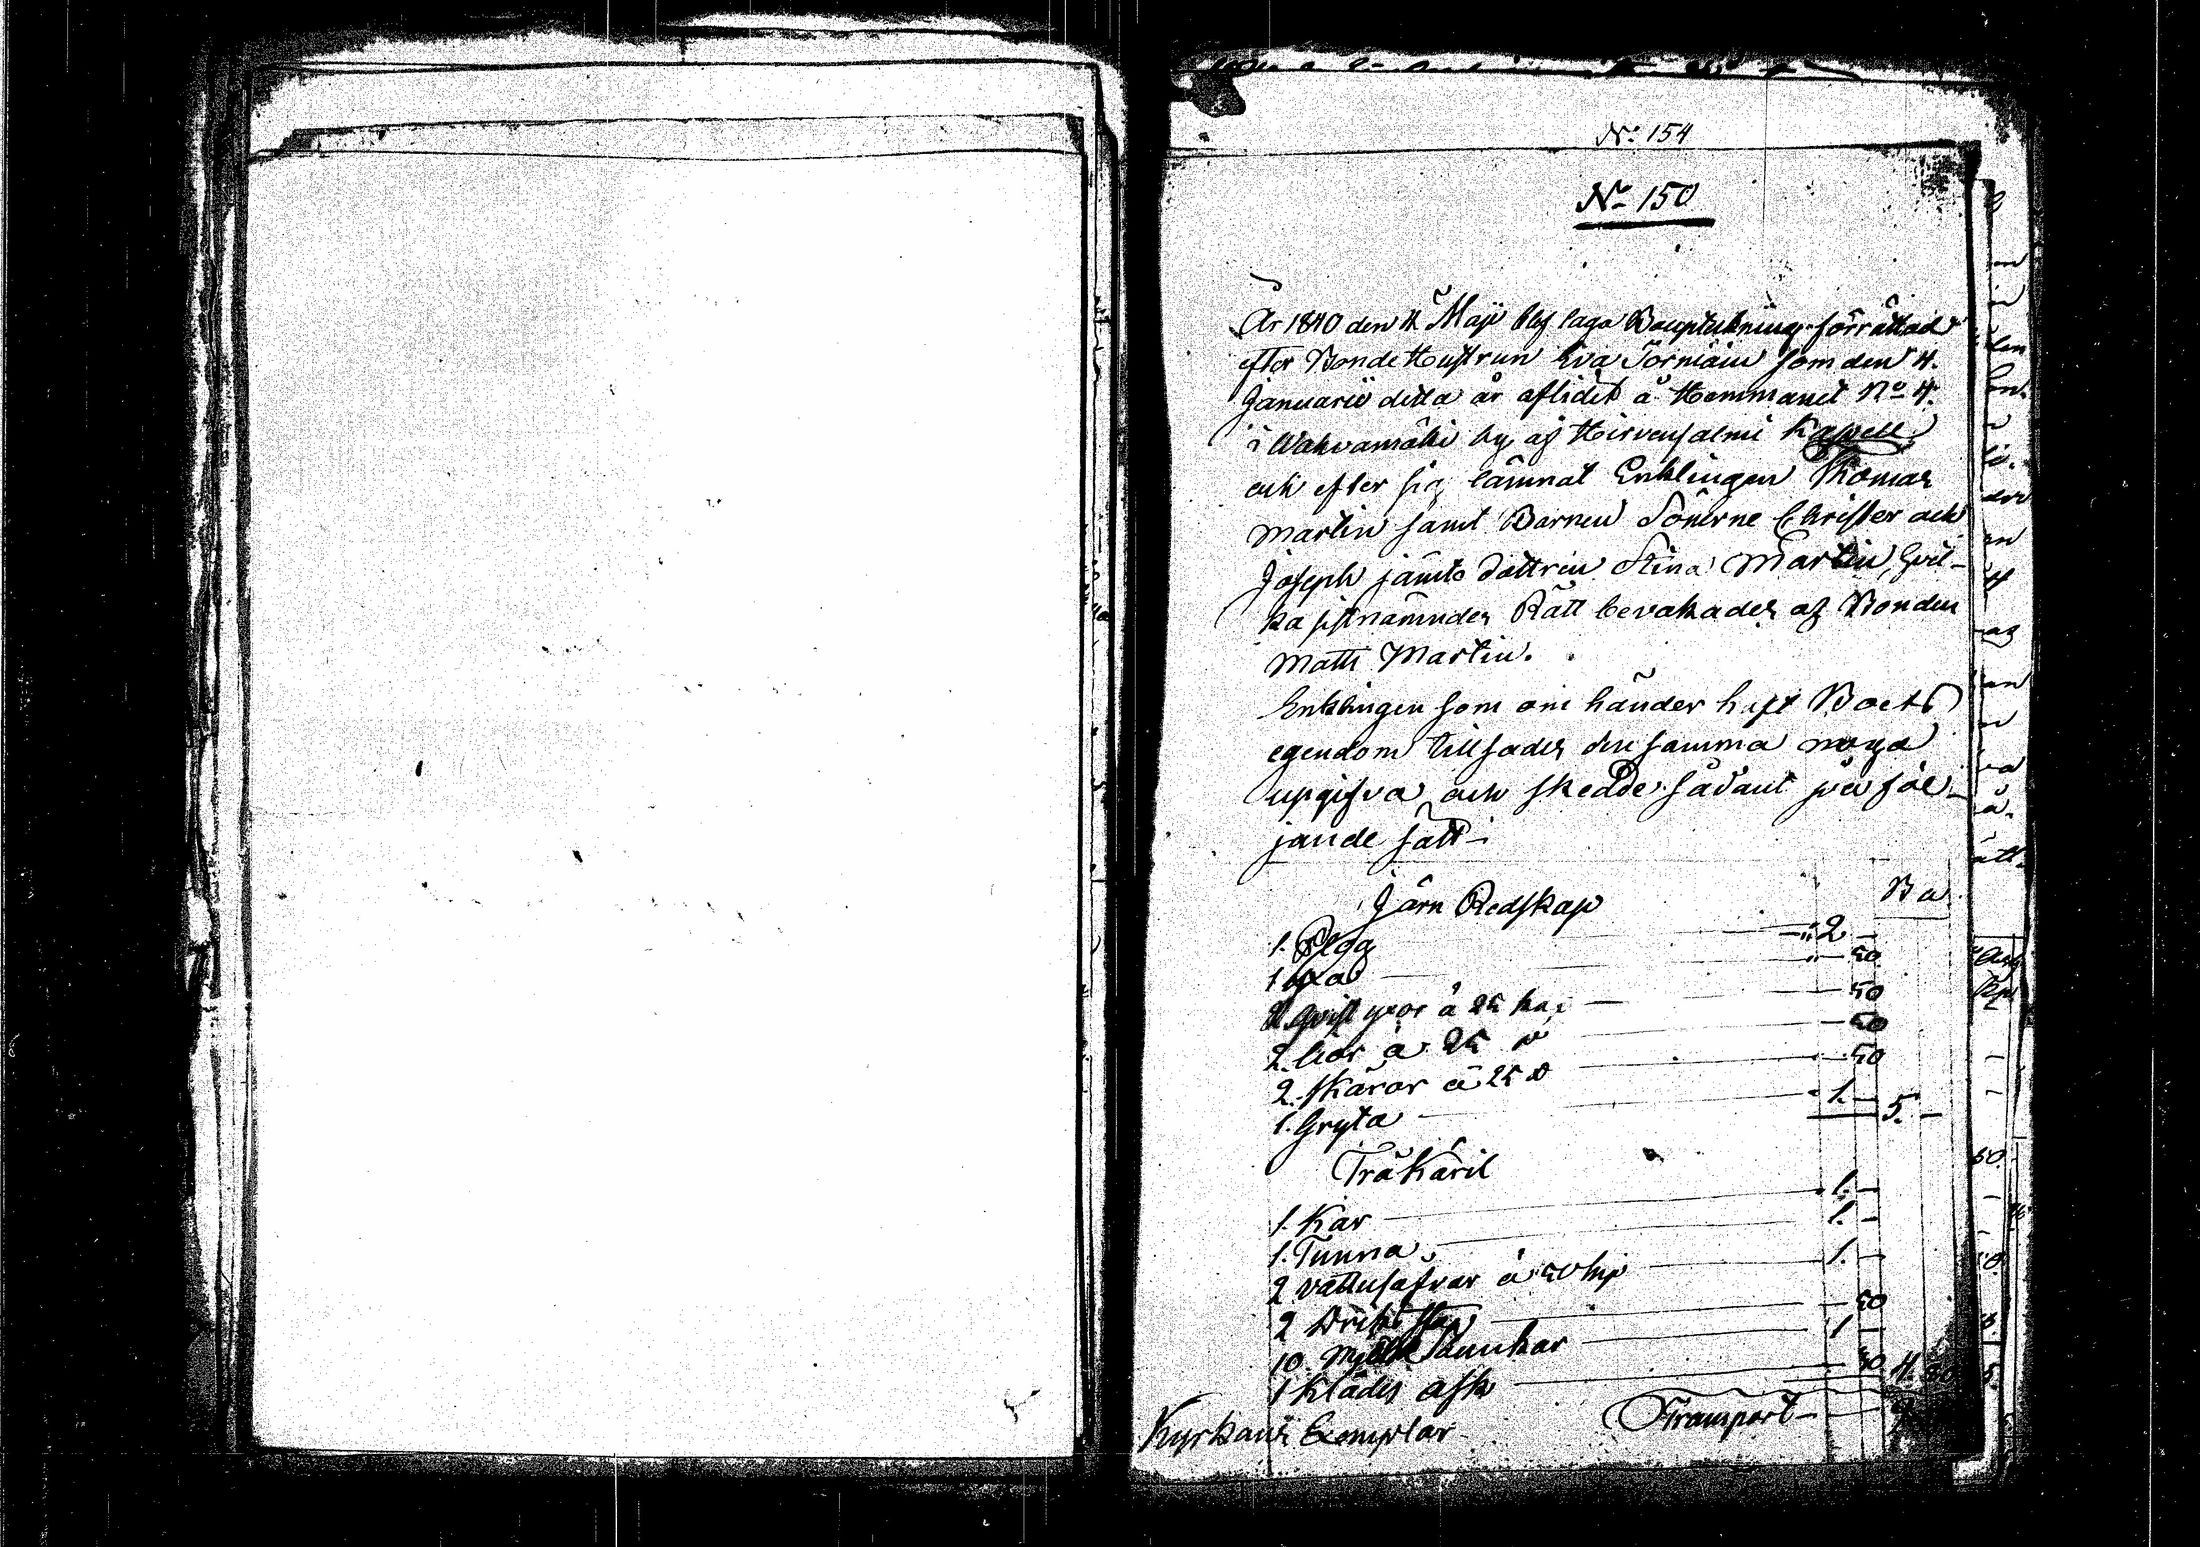 No 154
No 150
År 1840 den 4 Maji blef laga Bouptekning förrättad
efter Bonde Hustrun Eva Törniäin som den 4.
Januarii detta år aflidit å Hemmanet No 4.
i Wahvamäki by af Hirvensalmi Kapell
och efter sig lämnat Enklingen Thomas
Martin samt Barnen Sönerne Christer och
Joseph jämte dottren Stina Martin, hvil-
ka sistnämndes Rätt bevakades af Bonden
Matts Martin.
Enklingen som om händer haft Boets
egendom tillsades densamma noga
upgifva och skedde sådant på föl-
jande sätt:
Järn Redskap
1. Plog 2 —
1 yxa 50
2 qvist yxor à 25 ka 50
2. liar à 25 50
2. Skäror à 25 50
1. Gryta 1. — 5. —
Trä Käril
1. Kar 1. —
1. Tunna 1. —
2 vattusåfvar à 50 kop 1. —
2 Dricks 50
10. Mjölk Bunkar 1 —
1 Klädes ask 4.
Transport
Kyrkans Exemplar